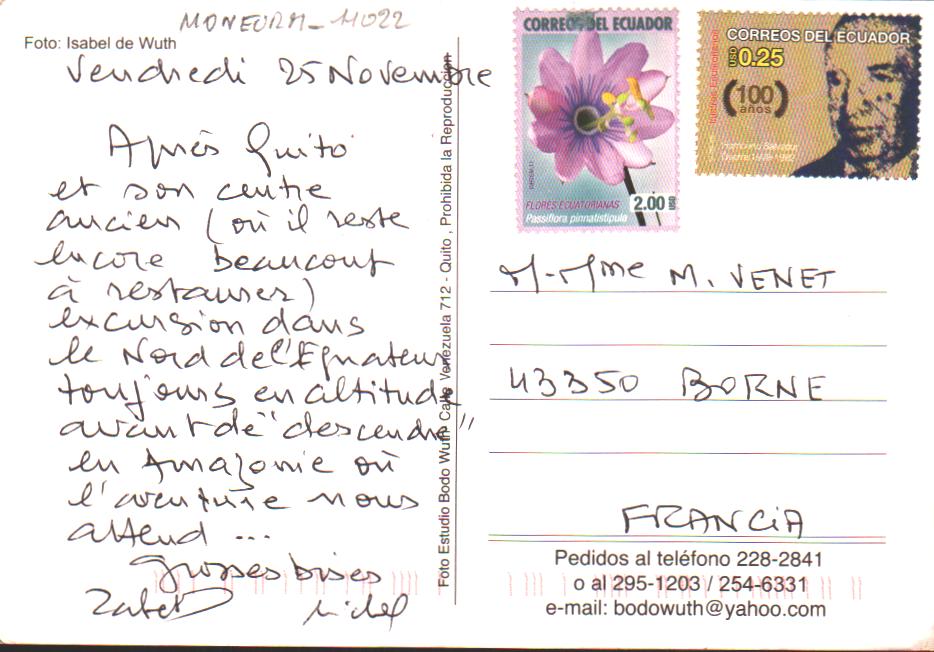 MONEURM_4022
Foto: Isabel de Wuth
Vendredi 25 Novembre
Après Quito
et son centre
ancien (où il reste
encore beaucout
à restaurer)
excursion dans
le Nord de l'Equateur
toujours en altitude
avant de "descendre"
en Amazonie où
l'aventure nous
attend ...
Grosses bises
Zabet Michel
Foto Estudio Bodo Wuth Calle Venezuela 712 - Quito , Prohibida la Reproduccion
CORREOS DEL ECUADOR
FLORES ECUATORIANAS
Passiflora pinnatistipula
2.00 USD
CORREOS DEL ECUADOR
USD 0.25
(100)
años
Humberto Salvador
Guerra 1909-1982
M-Mme M. VENET
43350 BORNE
FRANCiA
Pedidos al teléfono 228-2841
o al 295-1203 / 254-6331
e-mail: bodowuth@yahoo.com